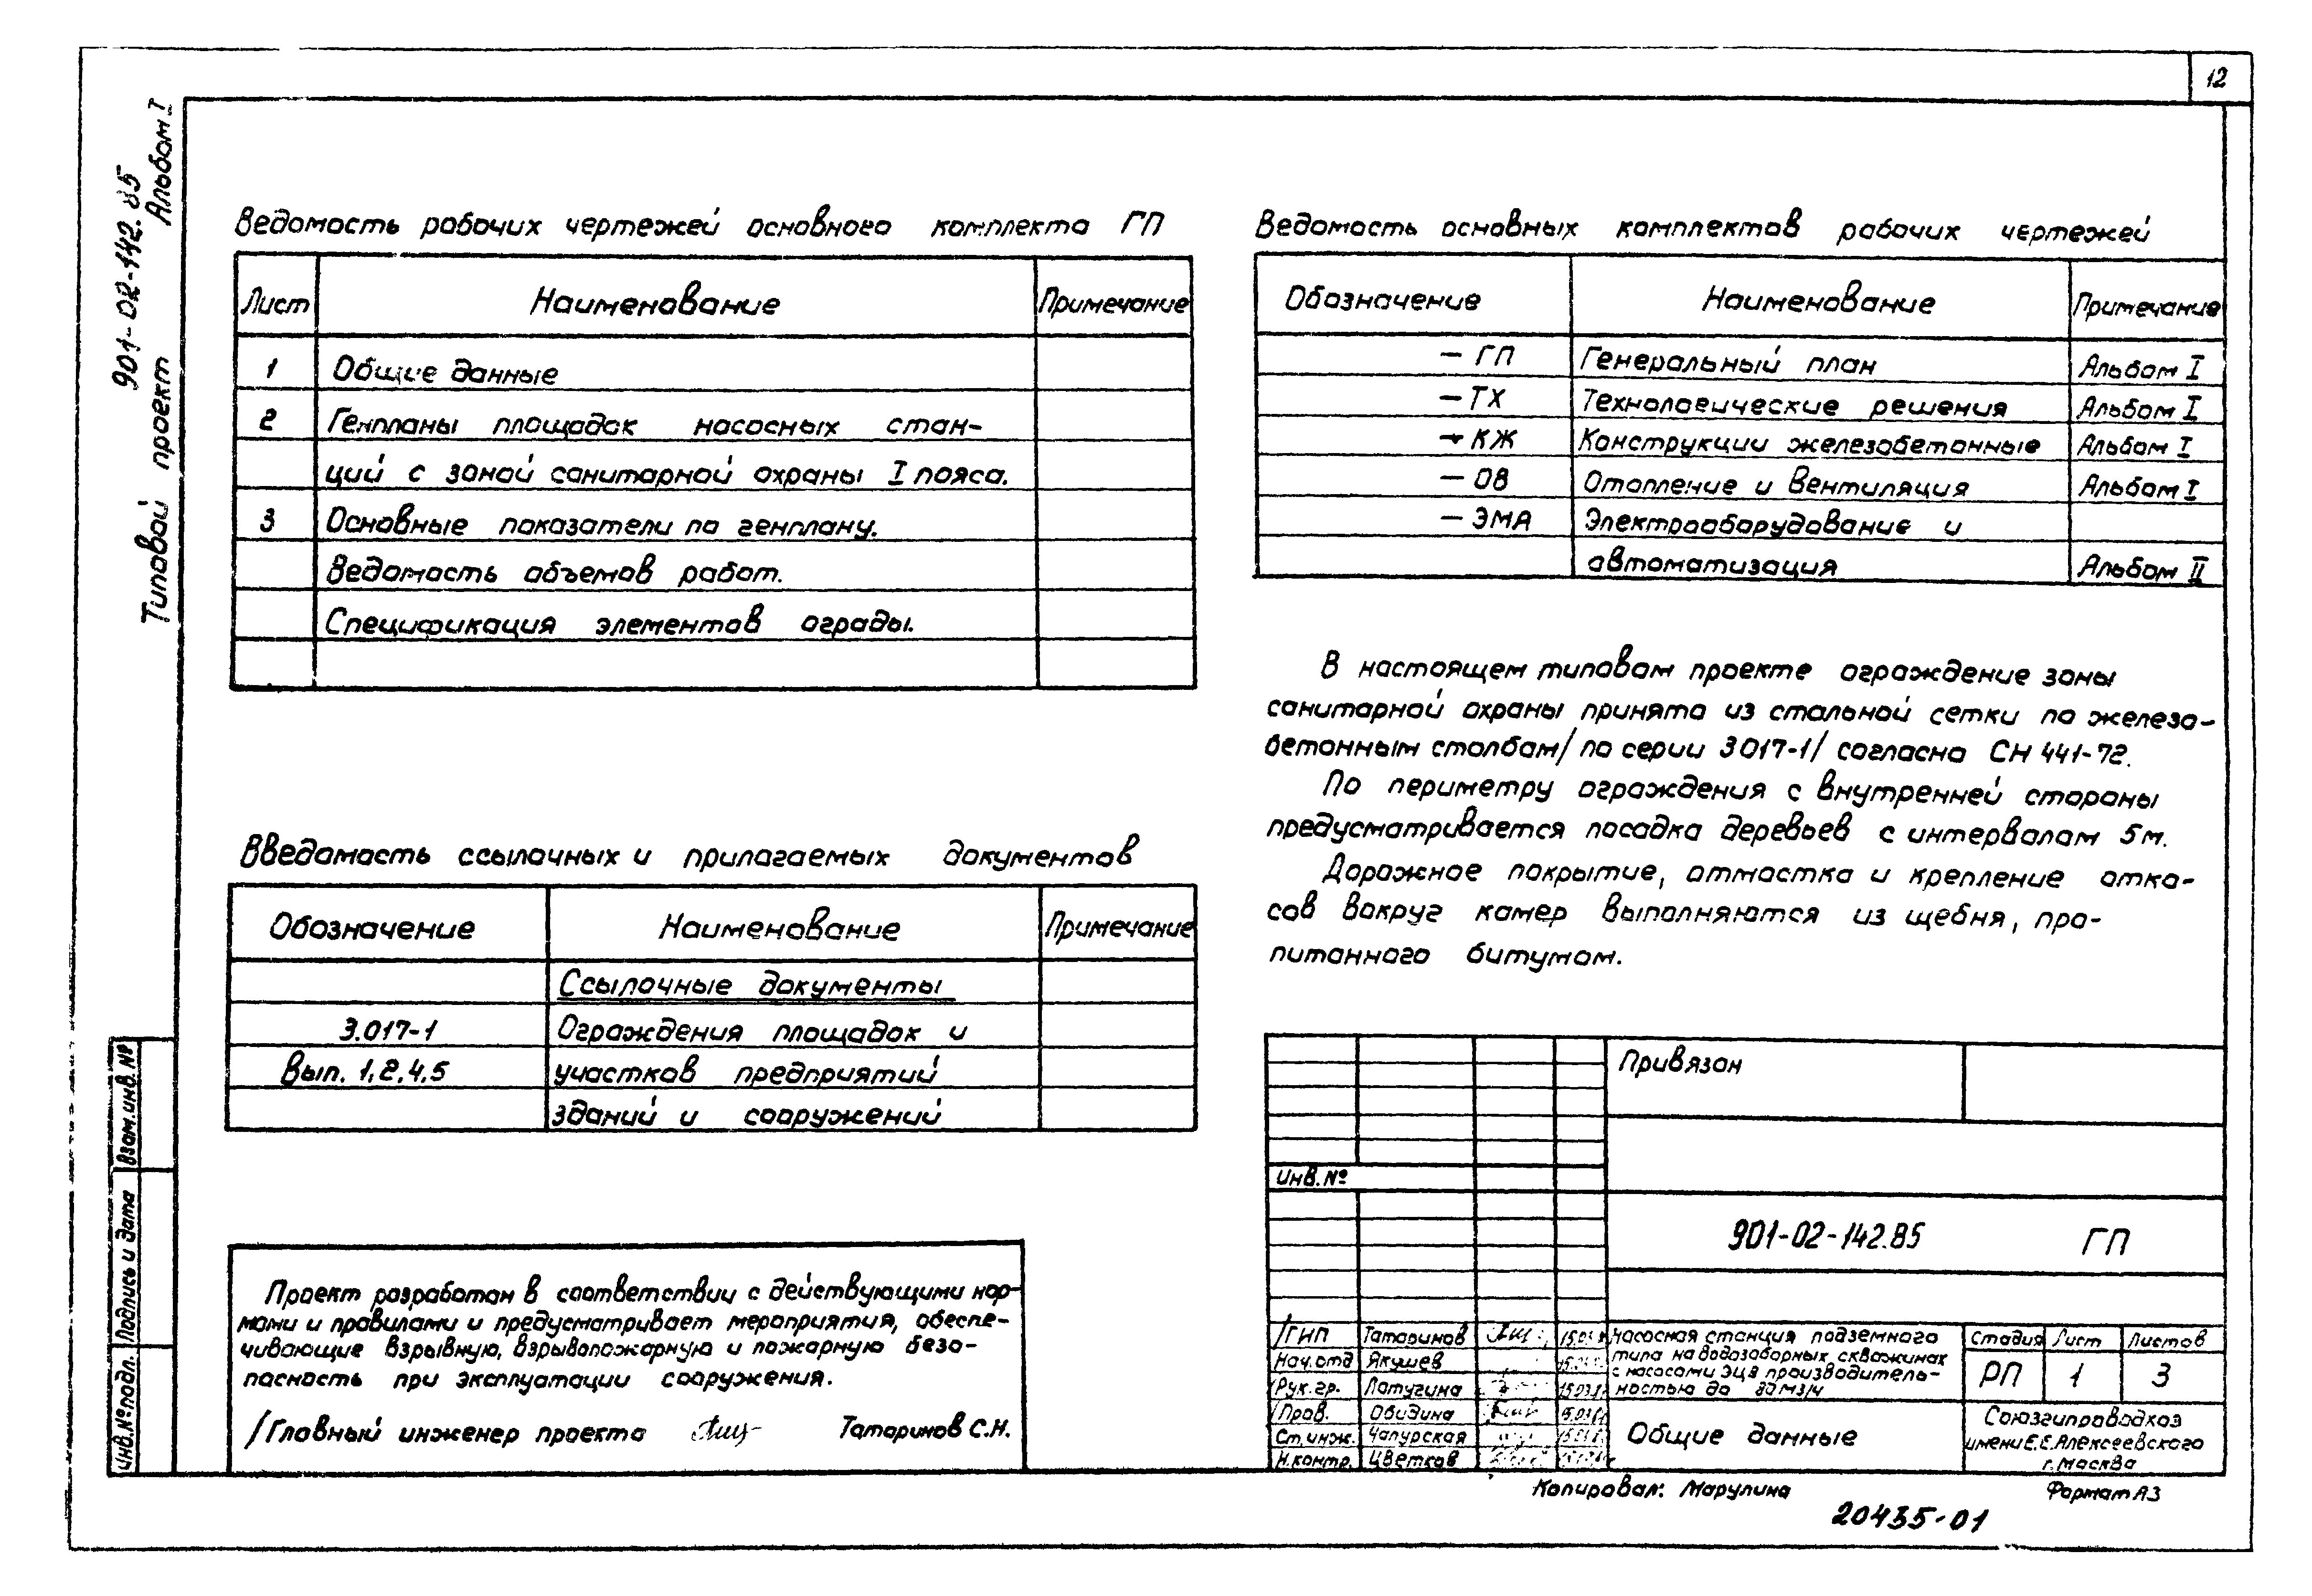 12
Типовой проект 901-02-142.85 Альбом I
Ведомость рабочих чертежей основного комплекта ГП
Лист Наименование Примечание
1 Общие данные
2 Генпланы площадок насосных стан-
ций с зоной санитарной охраны I пояса.
3 Основные показатели по генплану.
Ведомость объемов работ.
Спецификация элементов ограды.
Введомость ссылочных и прилагаемых документов
Обозначение Наименование Примечание
Ссылочные документы
3.017-1 Ограждения площадок и
Вып. 1,2,4,5 участков предприятий
зданий и сооружений
Проект разработан в соответствии с действующими нор-
мами и правилами и предусматривает мероприятия, обеспе-
чивающие взрывную, взрывопожарную и пожарную безо-
пасность при эксплуатации сооружения.
/Главный инженер проекта Татаринов С.Н.
Ведомость основных комплектов рабочих чертежей
Обозначение Наименование Примечание
- ГП Генеральный план Альбом I
- ТХ Технологические решения Альбом I
- КЖ Конструкции железобетонные Альбом I
- ОВ Отопление и Вентиляция Альбом I
- ЭМА Электрооборудование и
автоматизация Альбом II
В настоящем типовом проекте ограждение зоны
санитарной охраны принято из стальной сетки по железо-
бетонным столбам/по серии 3 017-1/ согласно СН 441-72.
По периметру ограждения с внутренней стороны
предусматривается посадка деревьев с интервалом 5м.
Дорожное покрытие, отмостка и крепление отко-
сов вокруг камер выполняются из щебня, про-
питанного битумом.
Привязан
Инв.№
901-02-142.85 ГП
/ГИП Татаринов
Нач.отд Якушев
Рук.гр. Латугина
/Пров. Обидина
Ст.инж. Чапурская
Н.контр. Цветков
Насосная станция подземного
типа на водозаборных скважинах
с насосами ЭЦВ производитель-
ностью до 80 м3/ч
Стадия Лист Листов
РП 1 3
Общие данные
Союзгипроводхоз
имени Е.Е.Алексеевского
г.Москва
Копировал: Марулина
Формат А3
20435-01
Инв.№подл. Подпись и дата Взам.инв.№